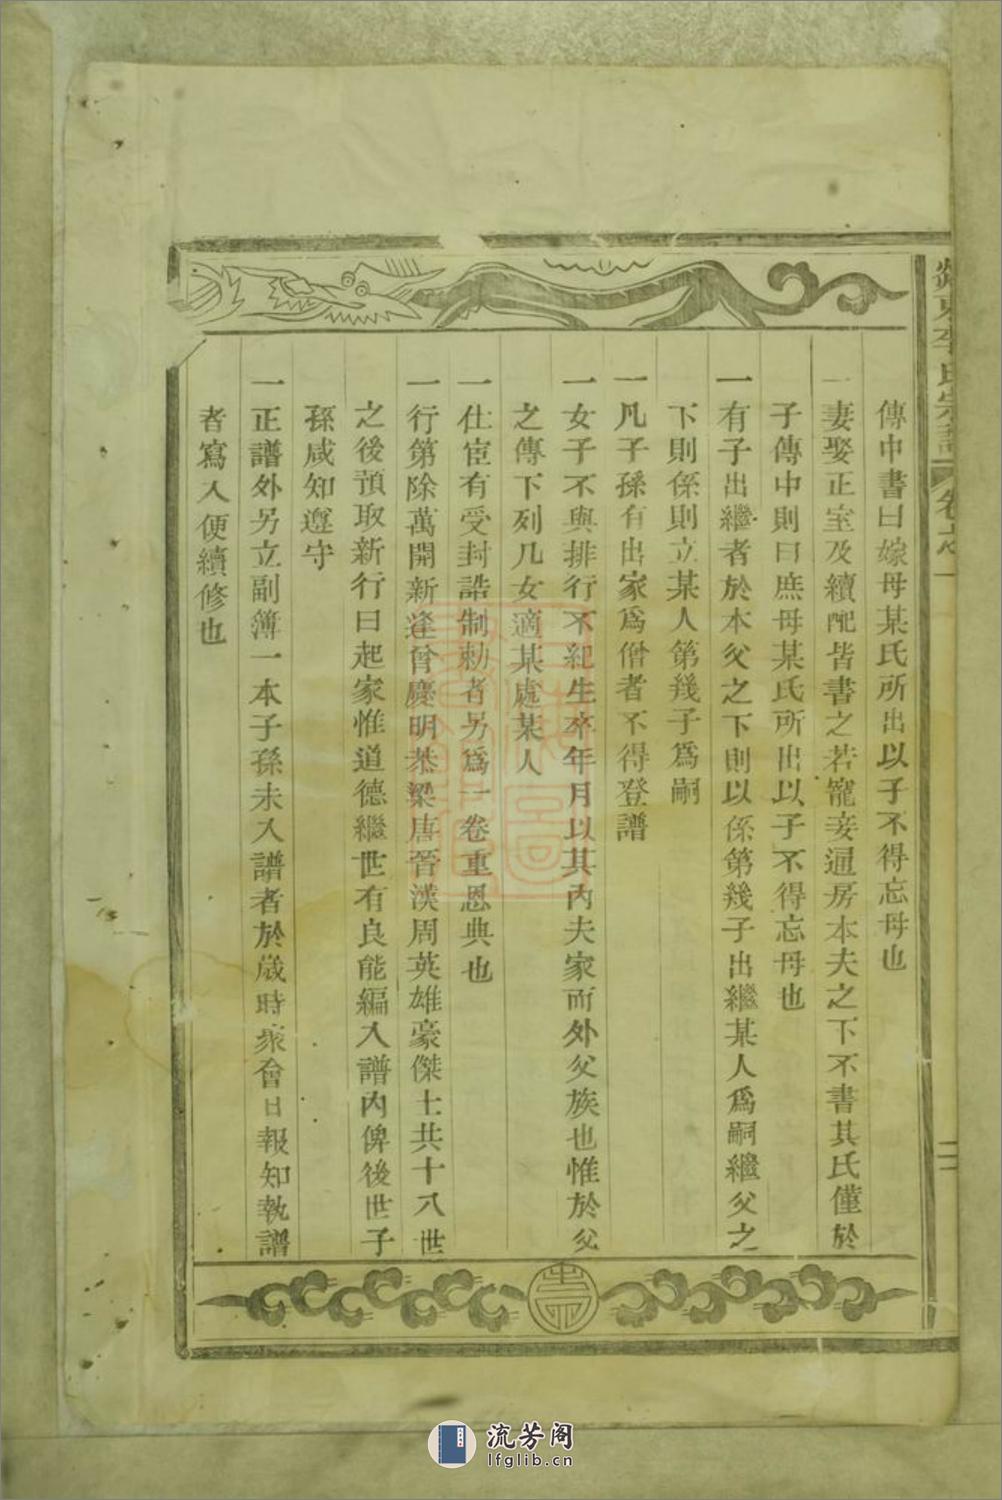 傳中書曰嫁母某氏所出以子不得忘母也
一妻娶正室及續配皆書之若寵妾通房本夫之下不書其氏僅於
子傳中則曰庶母某氏所出以子不得忘母也
一有子出繼者於本父之下則以係第幾子出繼某人爲嗣繼父之
下則係則立某人第幾子爲嗣
一凡子孫有出家爲僧者不得登譜
一女子不與排行不紀生卒年月以其內夫家而外父族也惟於父
之傳下列几女適某處某人
一仕宦有受封誥制勅者另爲一卷重恩典也
一行第除萬開新逢曾慶明恭梁唐晉漢周英雄豪傑士共十八世
之後預取新行曰起家惟道德繼世有良能編入譜內俾後世子
孫咸知遵守
一正譜外另立副簿一本子孫未入譜者於歲時衆會日報知執譜
者寫入便續修也
東李氏宗譜 卷之一
二
流芳阁
lfglib.cn